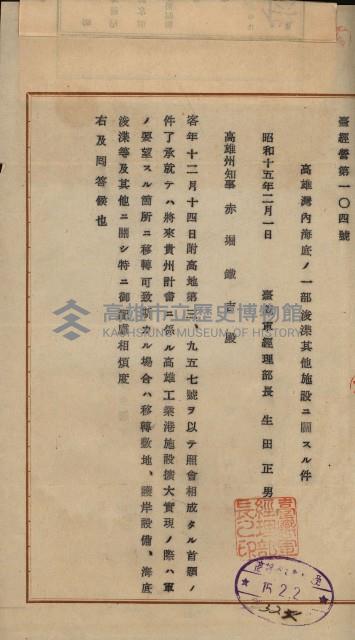 臺經營第一〇四號
高雄灣內海底ノ一部浚渫其他施設ニ關スル件
昭和十五年二月一日
臺灣軍經理部長 生田正男
高雄州知事 赤堀鐵吉殿
客年十二月十四日附高地第三 九五七號ヲ以テ照會相成タル首題ノ
件了承就テハ將來貴州計畫ニ係ル高雄工業港施設擴大實現ノ際ハ軍
ノ要望スル箇所ニ移轉可致モ 場合ハ移轉敷地、護岸設備、海底
浚渫等及其他ニ關シ特ニ御配慮相煩度
右及囘答候也
臺灣軍經理部長之印
15.2.2
高雄市立歷史博物館
KAOHSIUNG MUSEUM OF HISTORY